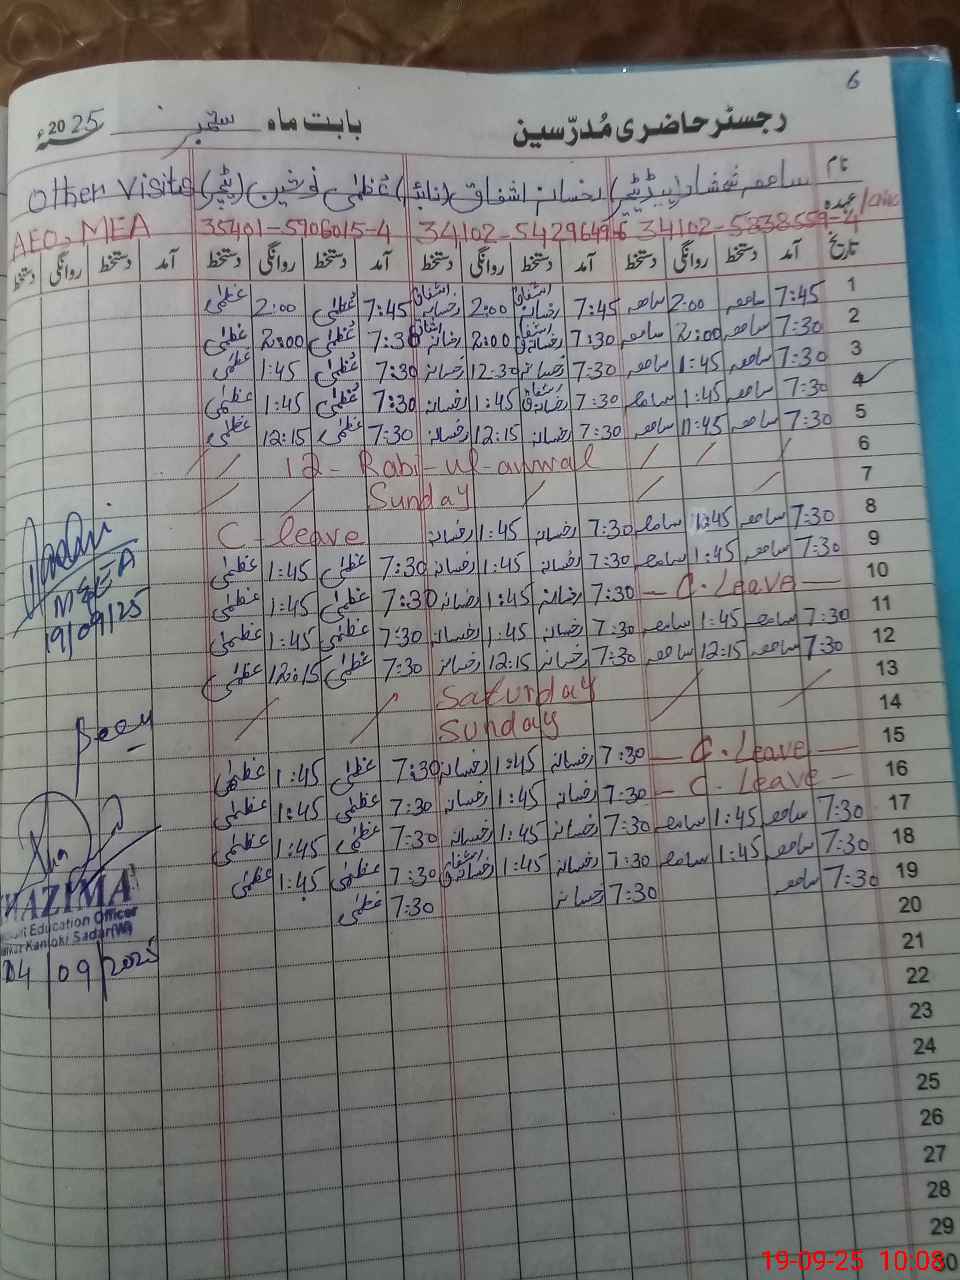 6
رجسٹر حاضری مُدرّسین بابت ماہ ستمبر 2025ء
نام
عہدہ / CNIC
Other Visits
34102-5838559-4 34102-5429649-6 35401-5906015-4 AEO, MEA
تاریخ آمد دستخط روانگی دستخط آمد دستخط روانگی دستخط آمد دستخط روانگی دستخط آمد دستخط روانگی دستخط
1 7:45 سامعہ 2:00 سامعہ 7:45 رخسانہ اشفاق 2:00 رخسانہ اشفاق 7:45 عظمیٰ 2:00 عظمیٰ
2 7:30 سامعہ 2:00 سامعہ 7:30 رخسانہ اشفاق 2:00 رخسانہ اشفاق 7:30 عظمیٰ 2:00 عظمیٰ
3 7:30 سامعہ 1:45 سامعہ 7:30 رخسانہ 12:30 رخسانہ 7:30 عظمیٰ 1:45 عظمیٰ
4 7:30 سامعہ 1:45 سامعہ 7:30 رخسانہ اشفاق 1:45 رخسانہ 7:30 عظمیٰ 1:45 عظمیٰ
5 7:30 سامعہ 11:45 سامعہ 7:30 رخسانہ 12:15 رخسانہ 7:30 عظمیٰ 12:15 عظمیٰ
6 12 - Rabi-ul-awwal
7 Sunday
8 7:30 سامعہ 1:45 سامعہ 7:30 رخسانہ 1:45 رخسانہ C. leave
9 7:30 سامعہ 1:45 سامعہ 7:30 رخسانہ 1:45 رخسانہ 7:30 عظمیٰ 1:45 عظمیٰ
10 C. Leave 7:30 رخسانہ 1:45 رخسانہ 7:30 عظمیٰ 1:45 عظمیٰ
11 7:30 سامعہ 1:45 سامعہ 7:30 رخسانہ 1:45 رخسانہ 7:30 عظمیٰ 1:45 عظمیٰ
12 7:30 سامعہ 12:15 سامعہ 7:30 رخسانہ 12:15 رخسانہ 7:30 عظمیٰ 12:15 عظمیٰ
13 Saturday
14 Sunday
15 C. Leave 7:30 رخسانہ 1:45 رخسانہ 7:30 عظمیٰ 1:45 عظمیٰ
16 C. Leave 7:30 رخسانہ 1:45 رخسانہ 7:30 عظمیٰ 1:45 عظمیٰ
17 7:30 سامعہ 1:45 سامعہ 7:30 رخسانہ 1:45 رخسانہ 7:30 عظمیٰ 1:45 عظمیٰ
18 7:30 سامعہ 1:45 سامعہ 7:30 رخسانہ 1:45 رخسانہ اشفاق 7:30 عظمیٰ 1:45 عظمیٰ
19 7:30 سامعہ 7:30 رخسانہ 7:30 عظمیٰ
20
21
22
23
24
25
26
27
28
29
30
MEA
19/09/25
Seen
Education Officer
Sadar(W)
04/09/2025
19-09-25 10:08